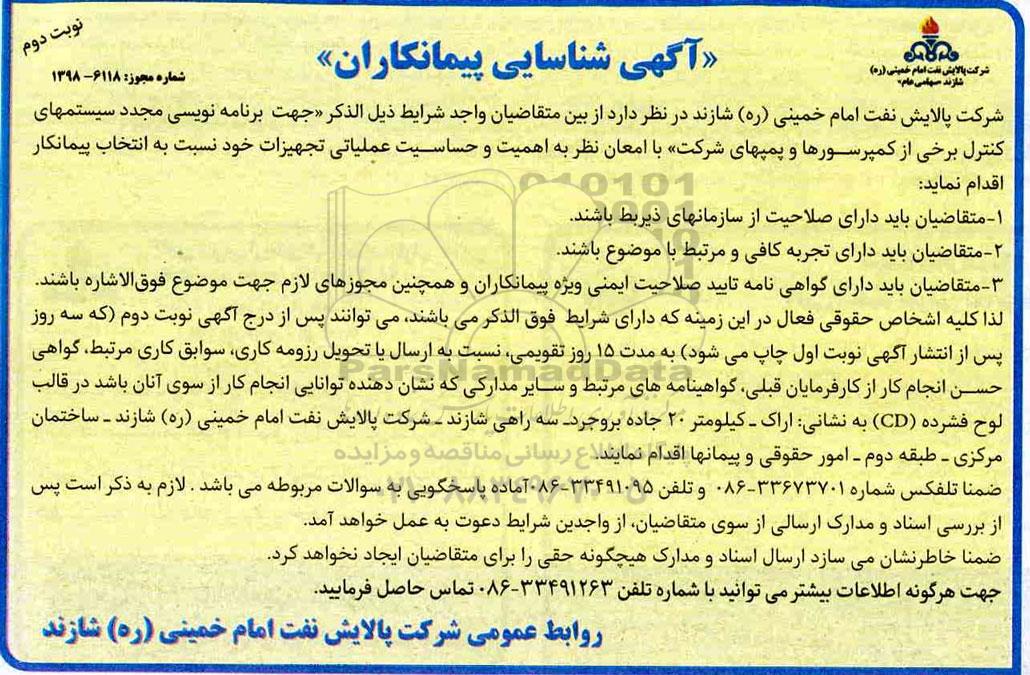 نوبت دوم
«آگهی شناسایی پیمانکاران»
شرکت پالایش نفت امام خمینی (ره)
شازند «سهامی عام»
شماره مجوز: ۶۱۱۸- ۱۳۹۸
شرکت پالایش نفت امام خمینی (ره) شازند در نظر دارد از بین متقاضیان واجد شرایط ذیل الذکر «جهت برنامه نویسی مجدد سیستمهای
کنترل برخی از کمپرسورها و پمپهای شرکت» با امعان نظر به اهمیت و حساسیت عملیاتی تجهیزات خود نسبت به انتخاب پیمانکار
اقدام نماید:
۱-متقاضیان باید دارای صلاحیت از سازمانهای ذیربط باشند.
۲-متقاضیان باید دارای تجربه کافی و مرتبط با موضوع باشند.
۳-متقاضیان باید دارای گواهی نامه تایید صلاحیت ایمنی ویژه پیمانکاران و همچنین مجوزهای لازم جهت موضوع فوق‌الاشاره باشند.
لذا کلیه اشخاص حقوقی فعال در این زمینه که دارای شرایط فوق الذکر می باشند، می توانند پس از درج آگهی نوبت دوم (که سه روز
پس از انتشار آگهی نوبت اول چاپ می شود) به مدت ۱۵ روز تقویمی، نسبت به ارسال یا تحویل رزومه کاری، سوابق کاری مرتبط، گواهی
حسن انجام کار از کارفرمایان قبلی، گواهینامه های مرتبط و سایر مدارکی که نشان دهنده توانایی انجام کار از سوی آنان باشد در قالب
لوح فشرده (CD) به نشانی: اراک ـ کیلومتر ۲۰ جاده بروجرد ـ سه راهی شازند ـ شرکت پالایش نفت امام خمینی (ره) شازند ـ ساختمان
مرکزی ـ طبقه دوم ـ امور حقوقی و پیمانها اقدام نمایند.
ضمنا تلفکس شماره ۳۳۶۷۳۷۰۱-۰۸۶ و تلفن ۳۳۴۹۱۰۹۵-۰۸۶ آماده پاسخگویی به سوالات مربوطه می باشد . لازم به ذکر است پس
از بررسی اسناد و مدارک ارسالی از سوی متقاضیان، از واجدین شرایط دعوت به عمل خواهد آمد.
ضمنا خاطرنشان می سازد ارسال اسناد و مدارک هیچگونه حقی را برای متقاضیان ایجاد نخواهد کرد.
جهت هرگونه اطلاعات بیشتر می توانید با شماره تلفن ۳۳۴۹۱۲۶۳-۰۸۶ تماس حاصل فرمایید.
روابط عمومی شرکت پالایش نفت امام خمینی (ره) شازند
ParsNamadData
پایگاه اطلاع رسانی مناقصه و مزایده